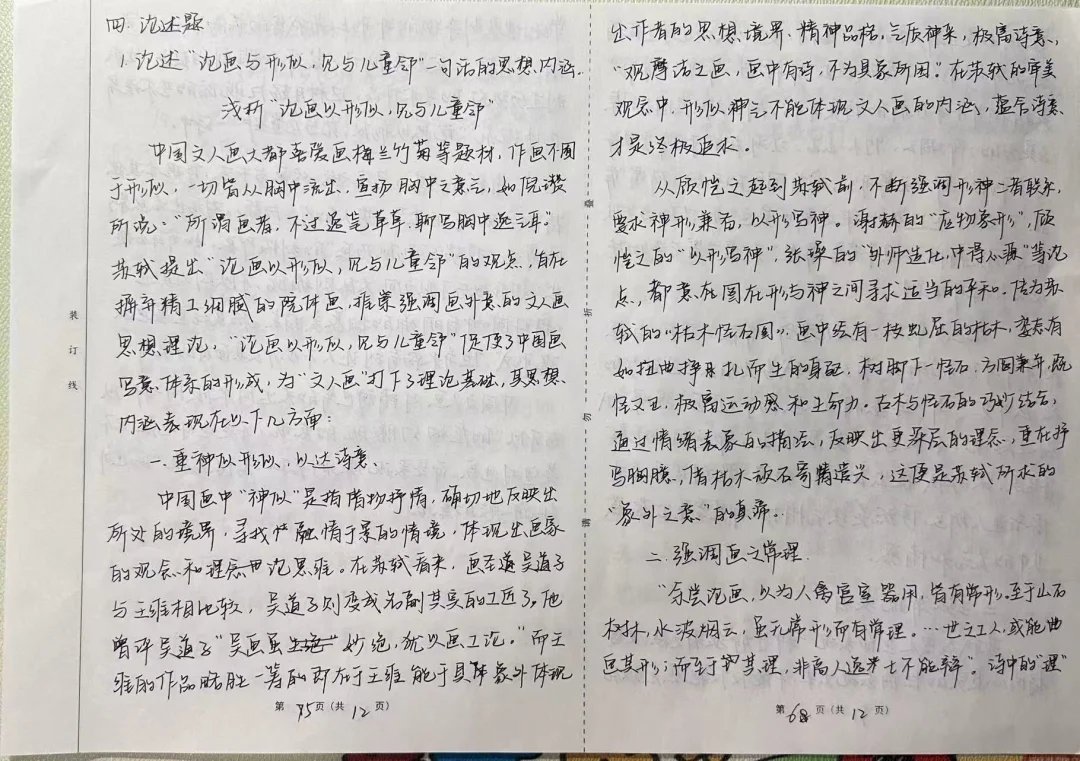 四. 论述题
1. 论述“论画与形似，见与儿童邻”一句话的思想内涵.
浅析“论画以形似，见与儿童邻”
中国文人画大都喜爱画梅兰竹菊等题材，作画不图
于形似，一切皆从胸中流出，宣扬胸中之意气，如倪瓒
所说：“所谓画者，不过逸笔草草，聊写胸中逸气耳”
苏轼提出“论画以形似，见与儿童邻”的观点，旨在
摒弃精工细腻的院体画，推崇强调画外意的文人画
思想理论，“论画以形似，见与儿童邻”促使了中国画
写意体系的形成，为“文人画”打下了理论基础，其思想
内涵表现在以下几方面：
一. 重神似形似，以达诗意.
中国画中“神似”是指借物抒情，确切地反映出
所处的境界，寻找 融情于景的情境，体现出画家
的观念和理念 论思维。在苏轼看来，画圣 吴道子
与王维相比较，吴道子则变成名副其实的工匠了，他
曾评吴道子“吴画虽 妙绝，犹以画工论。”而王
维的作品略胜一筹的即在于王维能于具体象外体现
第 页（共12页）
出作者的思想境界、精神品格，气质神采，极富诗意，
“观摩诘之画，画中有诗，不为具象所困。”在苏轼的审美
观念中，形似神气不能体现文人画的内涵，蕴含诗意
才是终极追求.
从顾恺之起到苏轼前，不断强调形神二者联系，
要求神形兼备，以形写神。谢赫的“应物象形”，顾
恺之的“以形写神”，张璪的“外师造化，中得心源”等论
点，都意在图在形与神之间寻求适当的平和. 作为苏
轼的“枯木怪石图”. 画中绘有一枝虬屈的枯木，姿态有
如扭曲挣 扎而生的身躯，树脚下一怪石，方圆兼并，既
怪又丑，极富运动感和生命力，古木与怪石的巧妙结合，
通过情绪表象的描绘，反映出更深层的理念，重在抒
写胸臆，借枯木顽石寄情遣兴，这便是苏轼所求的
“象外之意”的真谛.
二. 强调画之常理.
“余尝论画，以为人禽宫室器用，皆有常形. 至于山石
树木，水波烟云，虽无常形而有常理。…世之工人，或能曲
画其形；而至于 其理，非高人逸士不能辨”. 诗中的“理”
第6页（共12页）
装订线
叠折勿请